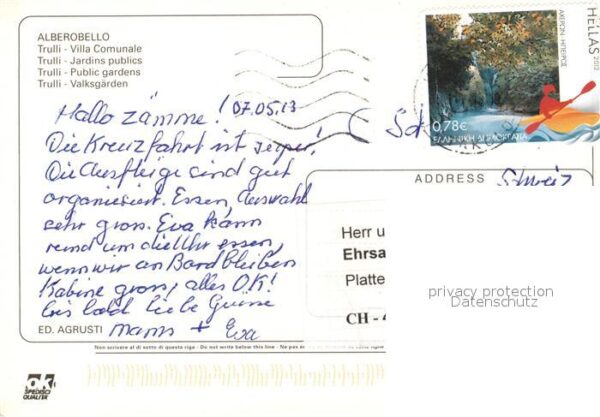 ALBEROBELLO
Trulli - Villa Comunale
Trulli - Jardins publics
Trulli - Public gardens
Trulli - Valksgärden
Hallo zämme! 07.05.13
Die Kreuzfahrt ist super!
Die Ausflüge sind gut
organisiert. Essen, Auswahl
sehr gross. Eva kann
rund um die Uhr essen,
wenn wir an Bord bleiben
Kabine gross, alles O.K!
bis bald liebe Grüsse
+ Eva
ED. AGRUSTI
HELLAS 2012
0,78€
ΕΛΛΗΝΙΚΗ ΔΗΜΟΚΡΑΤΙΑ
ADDRESS
Schweiz
Herr u
Ehrsa
Platte
CH - 4
privacy protection
Datenschutz
Non scrivere al di sotto di questa riga - Do not write below this line - Ne pas
ok
SPEDISCI
QUALI'SER